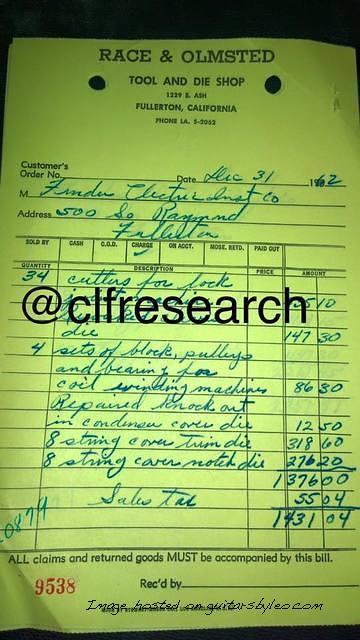 RACE & OLMSTED
TOOL AND DIE SHOP
1229 E. ASH
FULLERTON, CALIFORNIA
PHONE LA. 5-2062
Customer's
Order No. Date Dec 31 1962
M Fender Electric Inst Co
Address 500 So Raymond
Fullerton
SOLD BY CASH C.O.D. CHARGE ON ACCT. MDSE. RETD. PAID OUT
QUANTITY DESCRIPTION PRICE AMOUNT
34 cutters for lock
@clfresearch 10
die 147 30
4 sets of block, pulleys
and bearing for
coil winding machines 86 30
Repaired knock out
in condenser cover die 12 50
8 string cover trim die 318 60
8 string cover notch die 276 20
1376 00
Sales tax 55 04
1431 04
ALL claims and returned goods MUST be accompanied by this bill.
9538 Rec'd by
Image hosted on guitarsbyleo.com